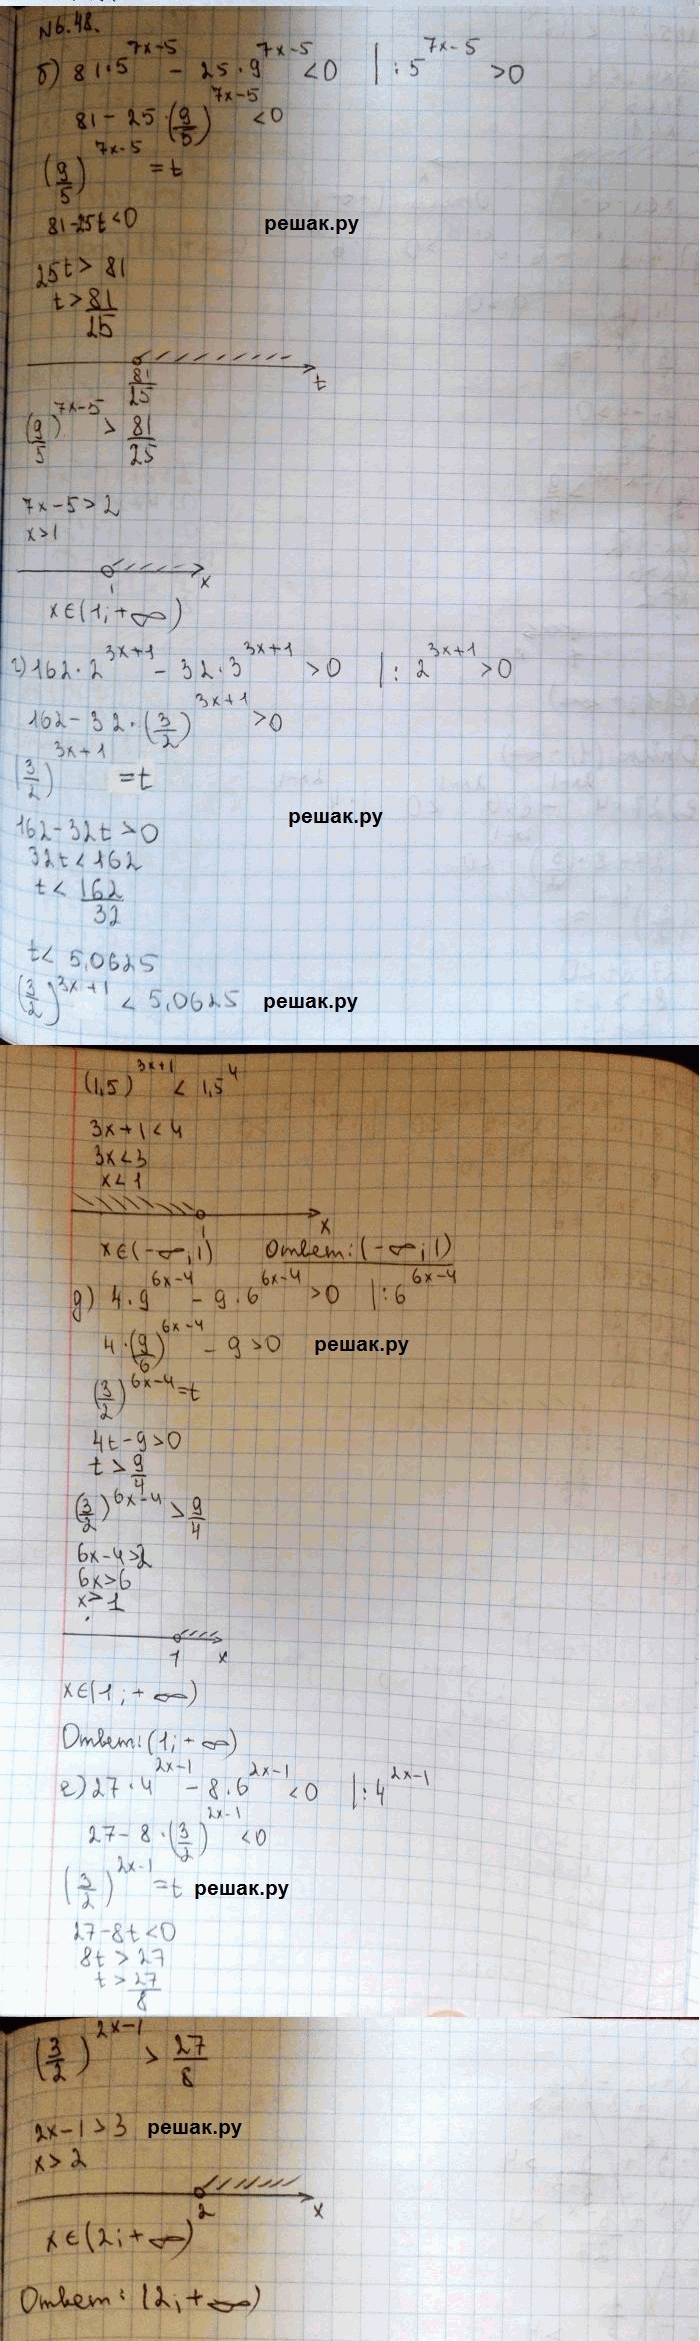 №6.48.
б) 81·5^(7x-5) - 25·9^(7x-5) <0 |:5^(7x-5) >0
81 - 25·(9/5)^(7x-5) <0
(9/5)^(7x-5) = t
81-25t<0
решак.ру
25t> 81
t> 81/25
81/25 t
(9/5)^(7x-5) > 81/25
7x-5>2
x>1
1 x
x∈(1;+∞)
г) 162·2^(3x+1) - 32·3^(3x+1) >0 |: 2^(3x+1) >0
162-32·(3/2)^(3x+1) >0
(3/2)^(3x+1) =t
решак.ру
162-32t>0
32t<162
t< 162/32
t< 5,0625
(3/2)^(3x+1) < 5,0625 решак.ру
(1,5)^(3x+1) < 1,5^4
3x+1<4
3x<3
x<1
1 x
x∈(-∞;1) Ответ: (-∞;1)
д) 4·9^(6x-4) - 9·6^(6x-4) >0 |:6^(6x-4)
4·(9/6)^(6x-4) - 9>0 решак.ру
(3/2)^(6x-4) =t
4t-9>0
t> 9/4
(3/2)^(6x-4) > 9/4
6x-4>2
6x>6
x>1
1 x
x∈(1;+∞)
Ответ: (1;+∞)
е) 27·4^(2x-1) - 8·6^(2x-1) <0 |:4^(2x-1)
27-8·(3/2)^(2x-1) <0
(3/2)^(2x-1) =t решак.ру
27-8t<0
8t>27
t> 27/8
(3/2)^(2x-1) > 27/8
2x-1>3 решак.ру
x>2
2 x
x∈(2;+∞)
Ответ: (2;+∞)